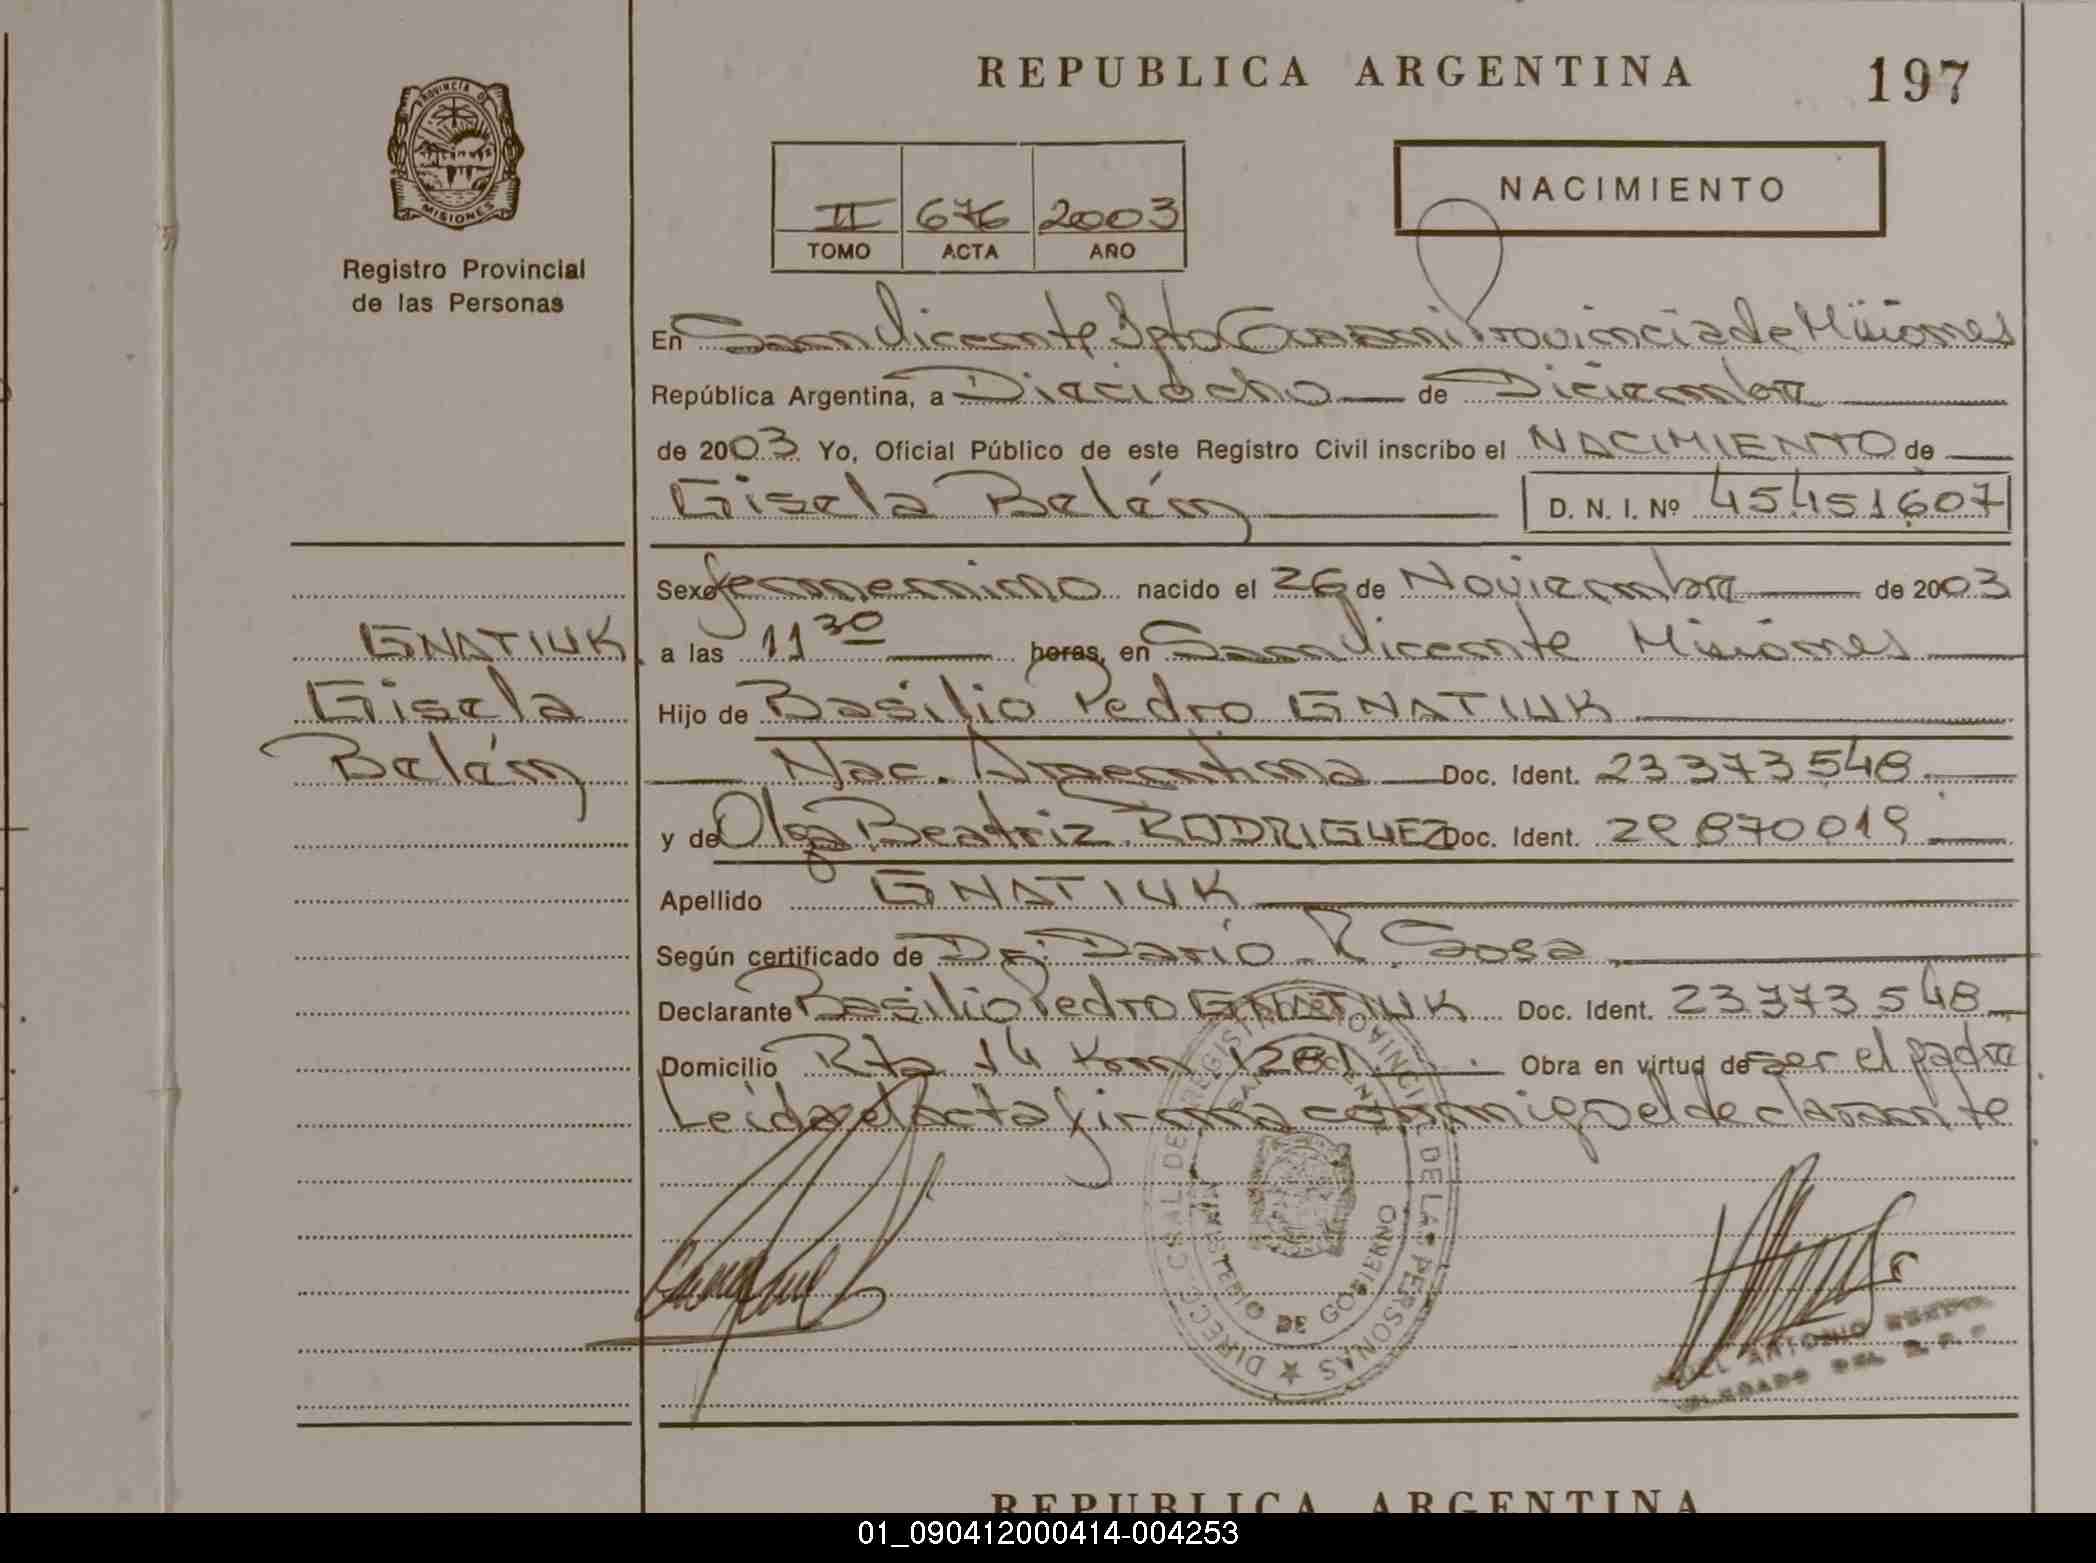 REPUBLICA ARGENTINA
197
PROVINCIA DE
MISIONES
Registro Provincial
de las Personas
II 676 2003
TOMO ACTA AÑO
NACIMIENTO
En San Vicente Dpto Guaraní Provincia de Misiones
República Argentina, a Dieciocho de Diciembre
de 2003 Yo, Oficial Público de este Registro Civil inscribo el NACIMIENTO de
Gisela Belén D. N. I. Nº 45451607
Sexo femenino nacido el 26 de Noviembre de 2003
GNATIUK
a las 11 30 horas, en San Vicente Misiones
Gisela
Hijo de Basilio Pedro GNATIUK
Belén
Nac. Argentina Doc. Ident. 23373548
y de Olga Beatriz RODRIGUEZ Doc. Ident. 28870019
Apellido GNATIUK
Según certificado de Dr: Darío R. Sosa
Declarante Basilio Pedro GNATIUK Doc. Ident. 23373548
Domicilio Rta 14 Km 1281. Obra en virtud de ser el padre
Leida el acta firma conmigo el declarante
DIRECC. GRAL DE REGISTRO PROVINCIAL DE LAS PERSONAS
MINISTERIO DE GOBIERNO
SAN VICENTE
ANTONIO
DELEGADO DEL R. P. P.
REPUBLICA ARGENTINA
01_090412000414-004253